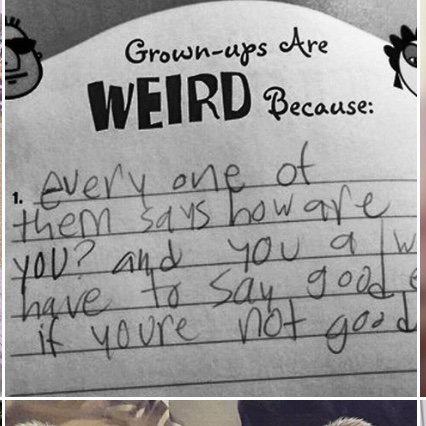 Grown-ups Are
WEIRD Because:
1. every one of
them says how are
you? and you a w
have to say good e
if youre not good